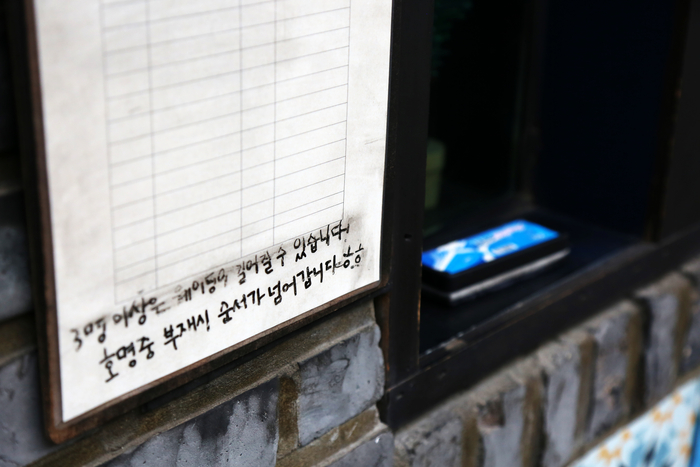 3명 이상은 웨이팅이 길어질 수 있습니다!
호명중 부재시 순서가 넘어갑니다 ㅎㅎ